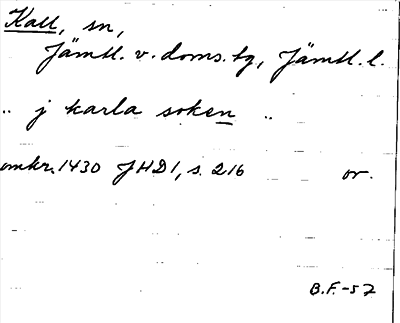 Kall, sn,
Jämtl. v. doms. tg, Jämtl. l.
.. j karla soken ..
omkr. 1430 JHD 1, s. 216 or.
B.F. -57